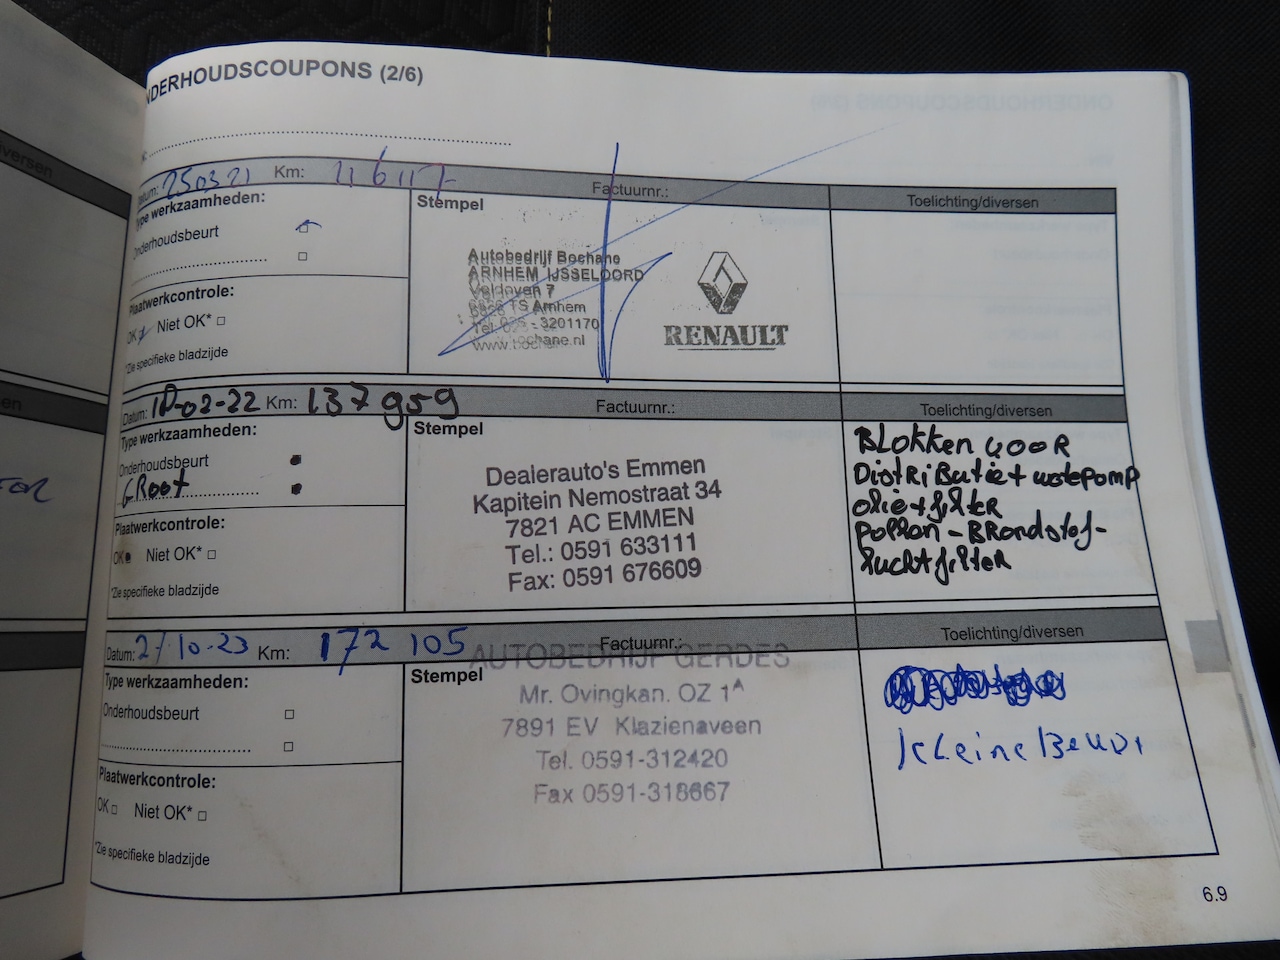 NDERHOUDSCOUPONS (2/6)
Datum: 250321 Km: Factuurnr.: Toelichting/diversen
Type werkzaamheden:
Onderhoudsbeurt
Plaatwerkcontrole:
OK Niet OK*
*Zie specifieke bladzijde
Stempel
Autobedrijf Bochane
ARNHEM IJSSELOORD
Veldoven 7
TS Arnhem
- 3201170
www.bochane.nl
RENAULT
Datum: -02-22 Km: 137 959 Factuurnr.: Toelichting/diversen
Type werkzaamheden:
Onderhoudsbeurt
GRoot
Plaatwerkcontrole:
OK Niet OK*
*Zie specifieke bladzijde
Stempel
Dealerauto's Emmen
Kapitein Nemostraat 34
7821 AC EMMEN
Tel.: 0591 633111
Fax: 0591 676609
BLokken vooR
DistRiButie + watepomp
olie + filteR
pollen - BRandstof-
luchtfilteR
Datum: 27-10-23 Km: 172 105 Factuurnr.: Toelichting/diversen
Type werkzaamheden:
Onderhoudsbeurt
Plaatwerkcontrole:
OK Niet OK*
*Zie specifieke bladzijde
Stempel
AUTOBEDRIJF GERDES
Mr. Ovingkan. OZ 1A
7891 EV Klazienaveen
Tel. 0591-312420
Fax 0591-318667
kleine Beurt
6.9